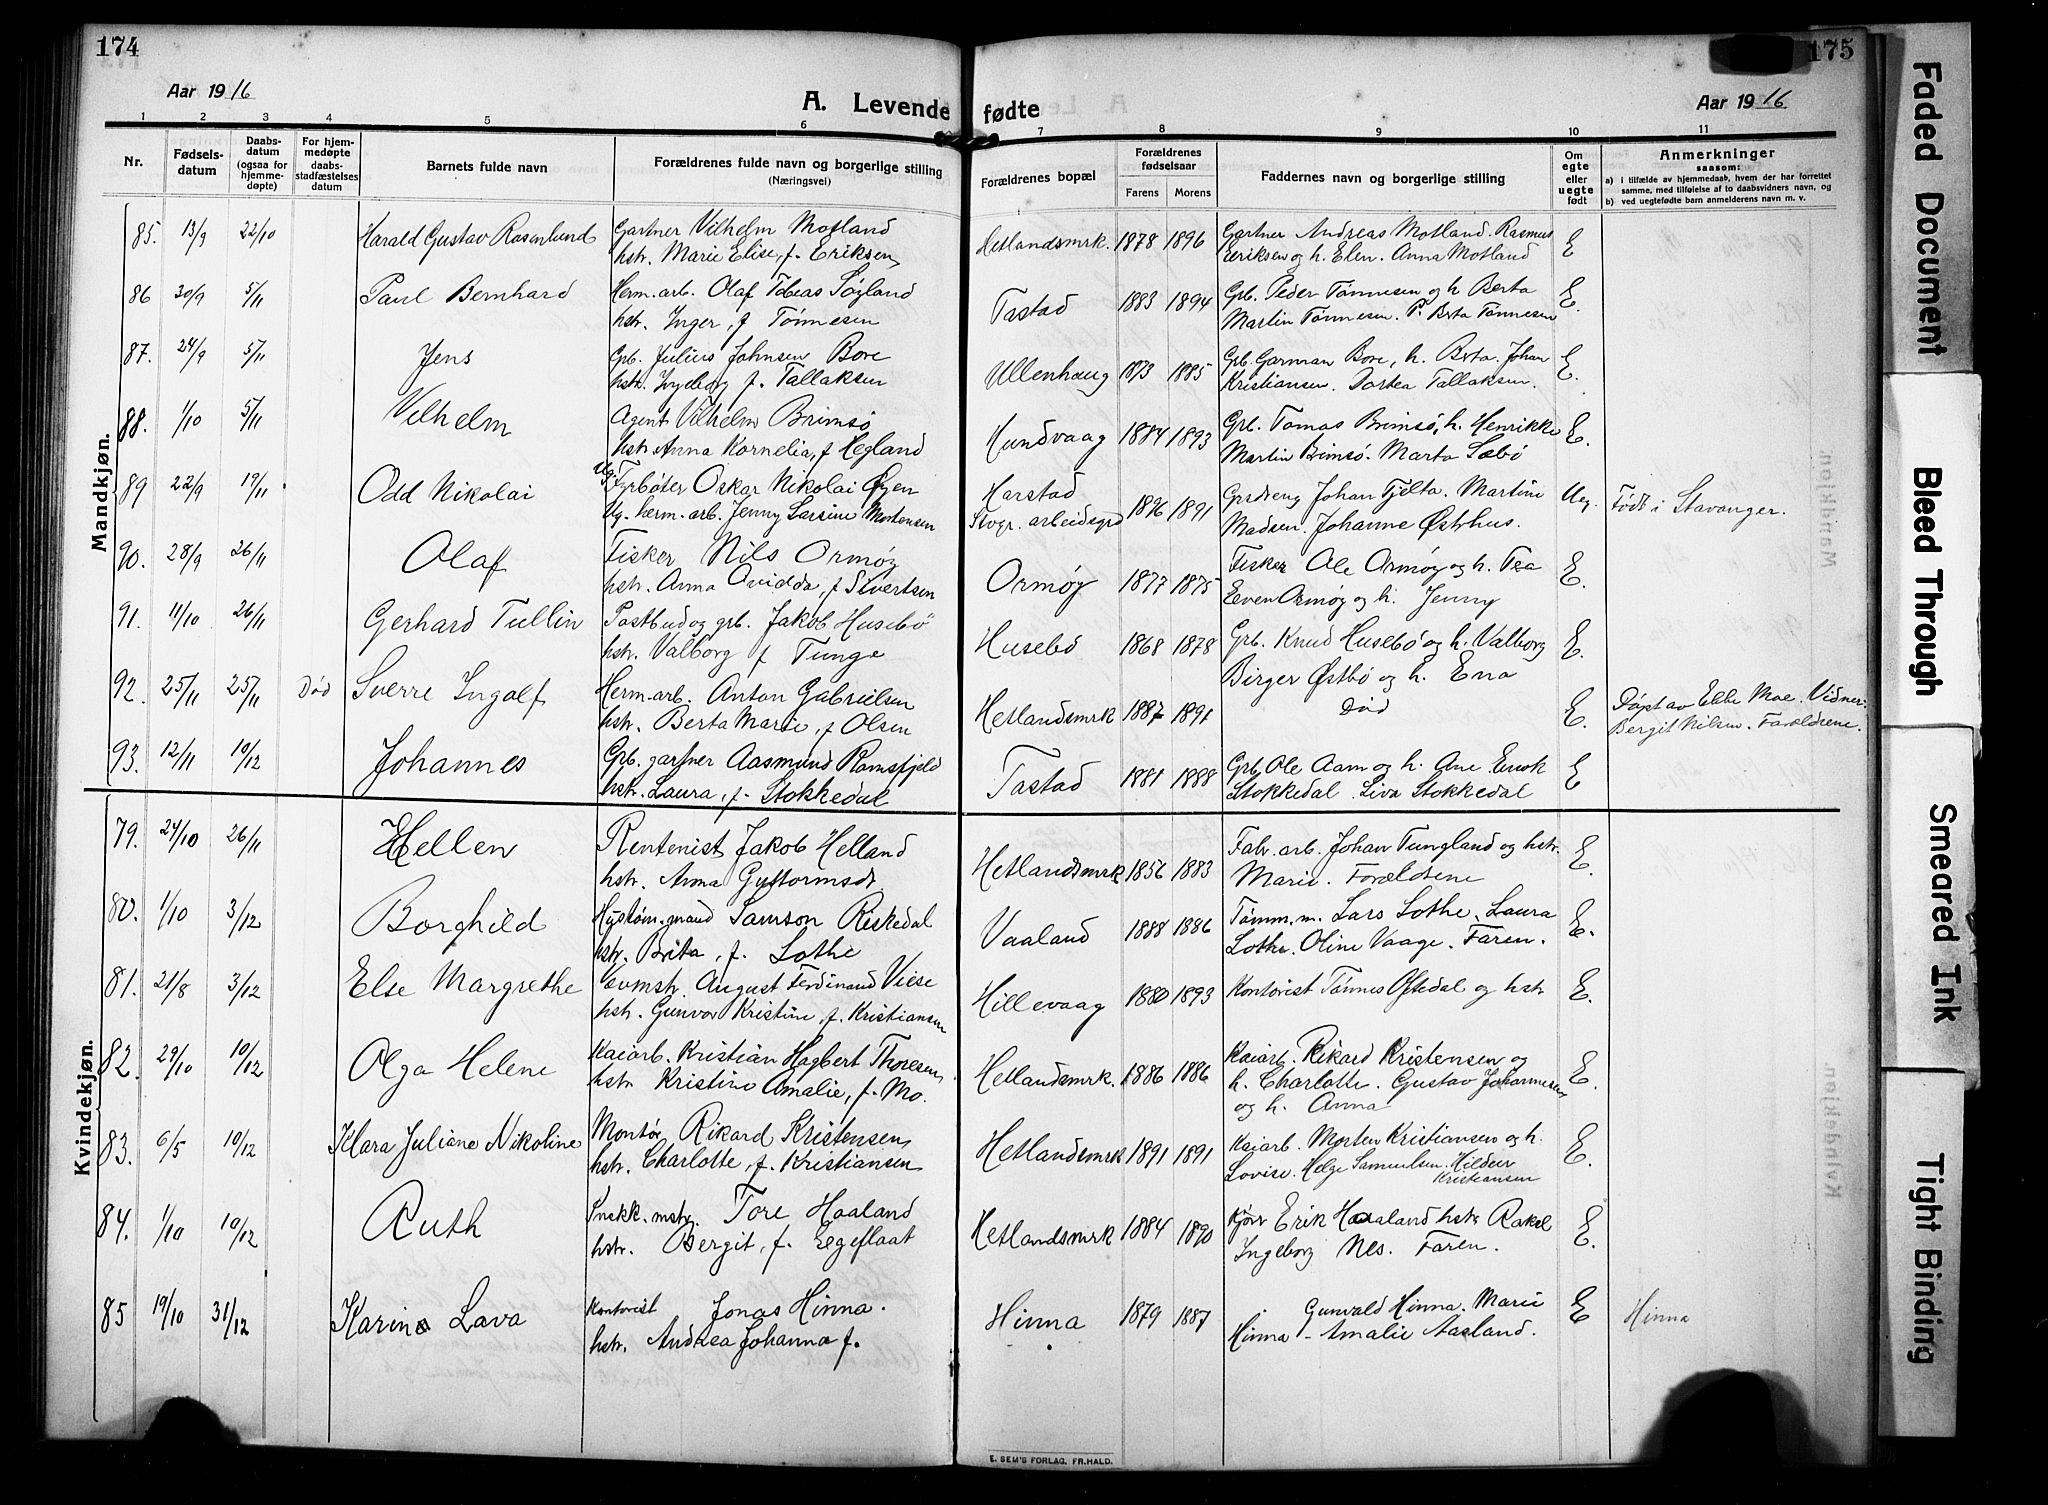 174
Aar 1916
A. Levende
1 2 3 4 5 6
Nr. Fødselsdatum Daabsdatum (ogsaa for hjemmedøpte) For hjemmedøpte daabsstadfæstelses datum Barnets fulde navn Forældrenes fulde navn og borgerlige stilling (Næringsvei)
Mandkjøn.
85. 13/9 22/10 Harald Gustav Rosenlund Gartner Vilhelm Motland
hstr. Marie Elise, f. Eriksen
86 30/9 5/11 Paul Bernhard Herm.arb. Olaf Tobias Søiland
hstr. Inger, f Tønnesen
87. 24/9 5/11 Jens Grb. Julius Johnsen Bore
hstr. Ingeborg f. Tallaksen
88. 1/10 5/11 Vilhelm Agent Vilhelm Brimsø
hstr. Anna Kornelia, f Hegland
89 22/9 19/11 Odd Nikolai Ug. Fyrbøter Oskar Nikolai Øyen
Ug. herm.arb. Jenny Larsine Mortensen
90. 28/9 26/11 Olaf Fisker Nils Ormøy
hstr. Anna Ovidda, f Sivertsen
91. 11/10 26/11 Gerhard Tullin Postbud og grb. Jakob Husebø
hstr. Valborg f Tunge
92. 25/11 25/11 Død Sverre Ingolf Herm.arb. Anton Gabrielsen
hstr. Berta Marie, f Olsen
93. 12/11 10/12 Johannes Grb. gartner Aasmund Ramsfjeld
hstr. Laura, f. Stokkedal
Kvindekjøn.
79. 24/10 26/11 Hellen Rentenist Jakob Helland
hstr. Anna Guttormsdr.
80. 1/10 3/12 Borghild Samson Riskedal
hstr. Brita, f. Lothe
81. 21/8 3/12 Else Margrethe Vævmstr. August Ferdinand Viese
hstr. Gunvor Kristine, f. Kristiansen
82. 29/10 10/12 Olga Helene Kaiarb. Kristian Hagbert Thoresen
hstr Kristine Amalie, f. Mo.
83. 6/5 10/12 Klara Juliane Nikoline Montør Rikard Kristensen
hstr. Charlotte, f. Kristiansen
84. 1/10 10/12 Ruth Snekk.mstr. Tore Haaland
hstr. Bergit, f. Egeflaat
85 19/10 31/12 Karina Lava Kontorist Jonas Hinna.
hstr. Andrea Johanna f.
175
fødte
Aar 1916
7 8 9 10 11
Forældrenes bopæl Forældrenes fødselsaar Farens Morens Faddernes navn og borgerlige stilling Om egte eller uegte født Anmerkninger
saasom:
a) i tilfælde av hjemmedaab, hvem der har forrettet samme, med tilføielse af to daabsvidners navn, og
b) ved uegtefødte barn anmelderens navn m. v.
Hetlandsmrk. 1878 1896 Gartner Andreas Motland. Rasmus
Eeriksen og h. Elen. Anna Motland E
Tastad 1883 1894 Grb. Peder Tønnesen og h Berta
Martin Tønnesen. P. Berta Tønnesen E.
Ullenhaug 1873 1885 Grb. Garman Bore, h. Berta. Johan
Kristiansen. Dortea Tallaksen. E.
Hundvaag 1884 1893 Grb. Tomas Brimsø, h. Henrikke
Martin Bimsø. Marta Sæbø E.
Harstad
Stvgr. arbeidsgrd 1896 1891 Grdreng Johan Tjelta. Martine
Madsen. Johanne Østhus. Ueg. Født i Stavanger.
Ormøy 1877 1875 Fisker Ole Ormøy og h. Tea
Even Ormøy og h. Jenny E.
Husebø 1868 1878 Grb. Knud Husebø og h. Valborg
Birger Østbø og h. Ena E.
Hetlandsmrk 1887 1891 Død E. Døpt av Ebbe Moe. Vidner:
Bergit Nilsen. Forældrene.
Tastad 1881 1888 Grb. Ole Aam og h. Ane Enok
Stokkedal. Siva Stokkedal E
Hetlandsmrk 1856 1883 Fabr. arb. Johan Tungland og hstr.
Marie. Forældrene E.
Vaaland 1888 1886 Tømm.m. Lars Lothe. Laura
Lothe. Oline Vaage. Faren. E.
Hillevaag 1880 1893 Kontorist Tønnes Oftedal og hstr E.
Hetlandsmrk. 1886 1886 Kaiarb. Rikard Kristensen og
h. Charlotte. Gustav Johannesen
og h. Anna E.
Hetlandsmrk 1891 1891 Kaiarb. Morten Kristiansen og h.
Lovise. Helge Samuelsen. Hildur
Kristiansen E.
Hetlandsmrk 1884 1890 Erik Haaland hstr Rakel
Ingeborg Nes. Faren. E.
Hinna 1879 1887 Gunvald Hinna. Marie
Hinna - Amalie Aasland. E Hinna
E. SEM'S FORLAG, FR.HALD.
Faded Document
Bleed Through
Smeared Ink
Tight Binding